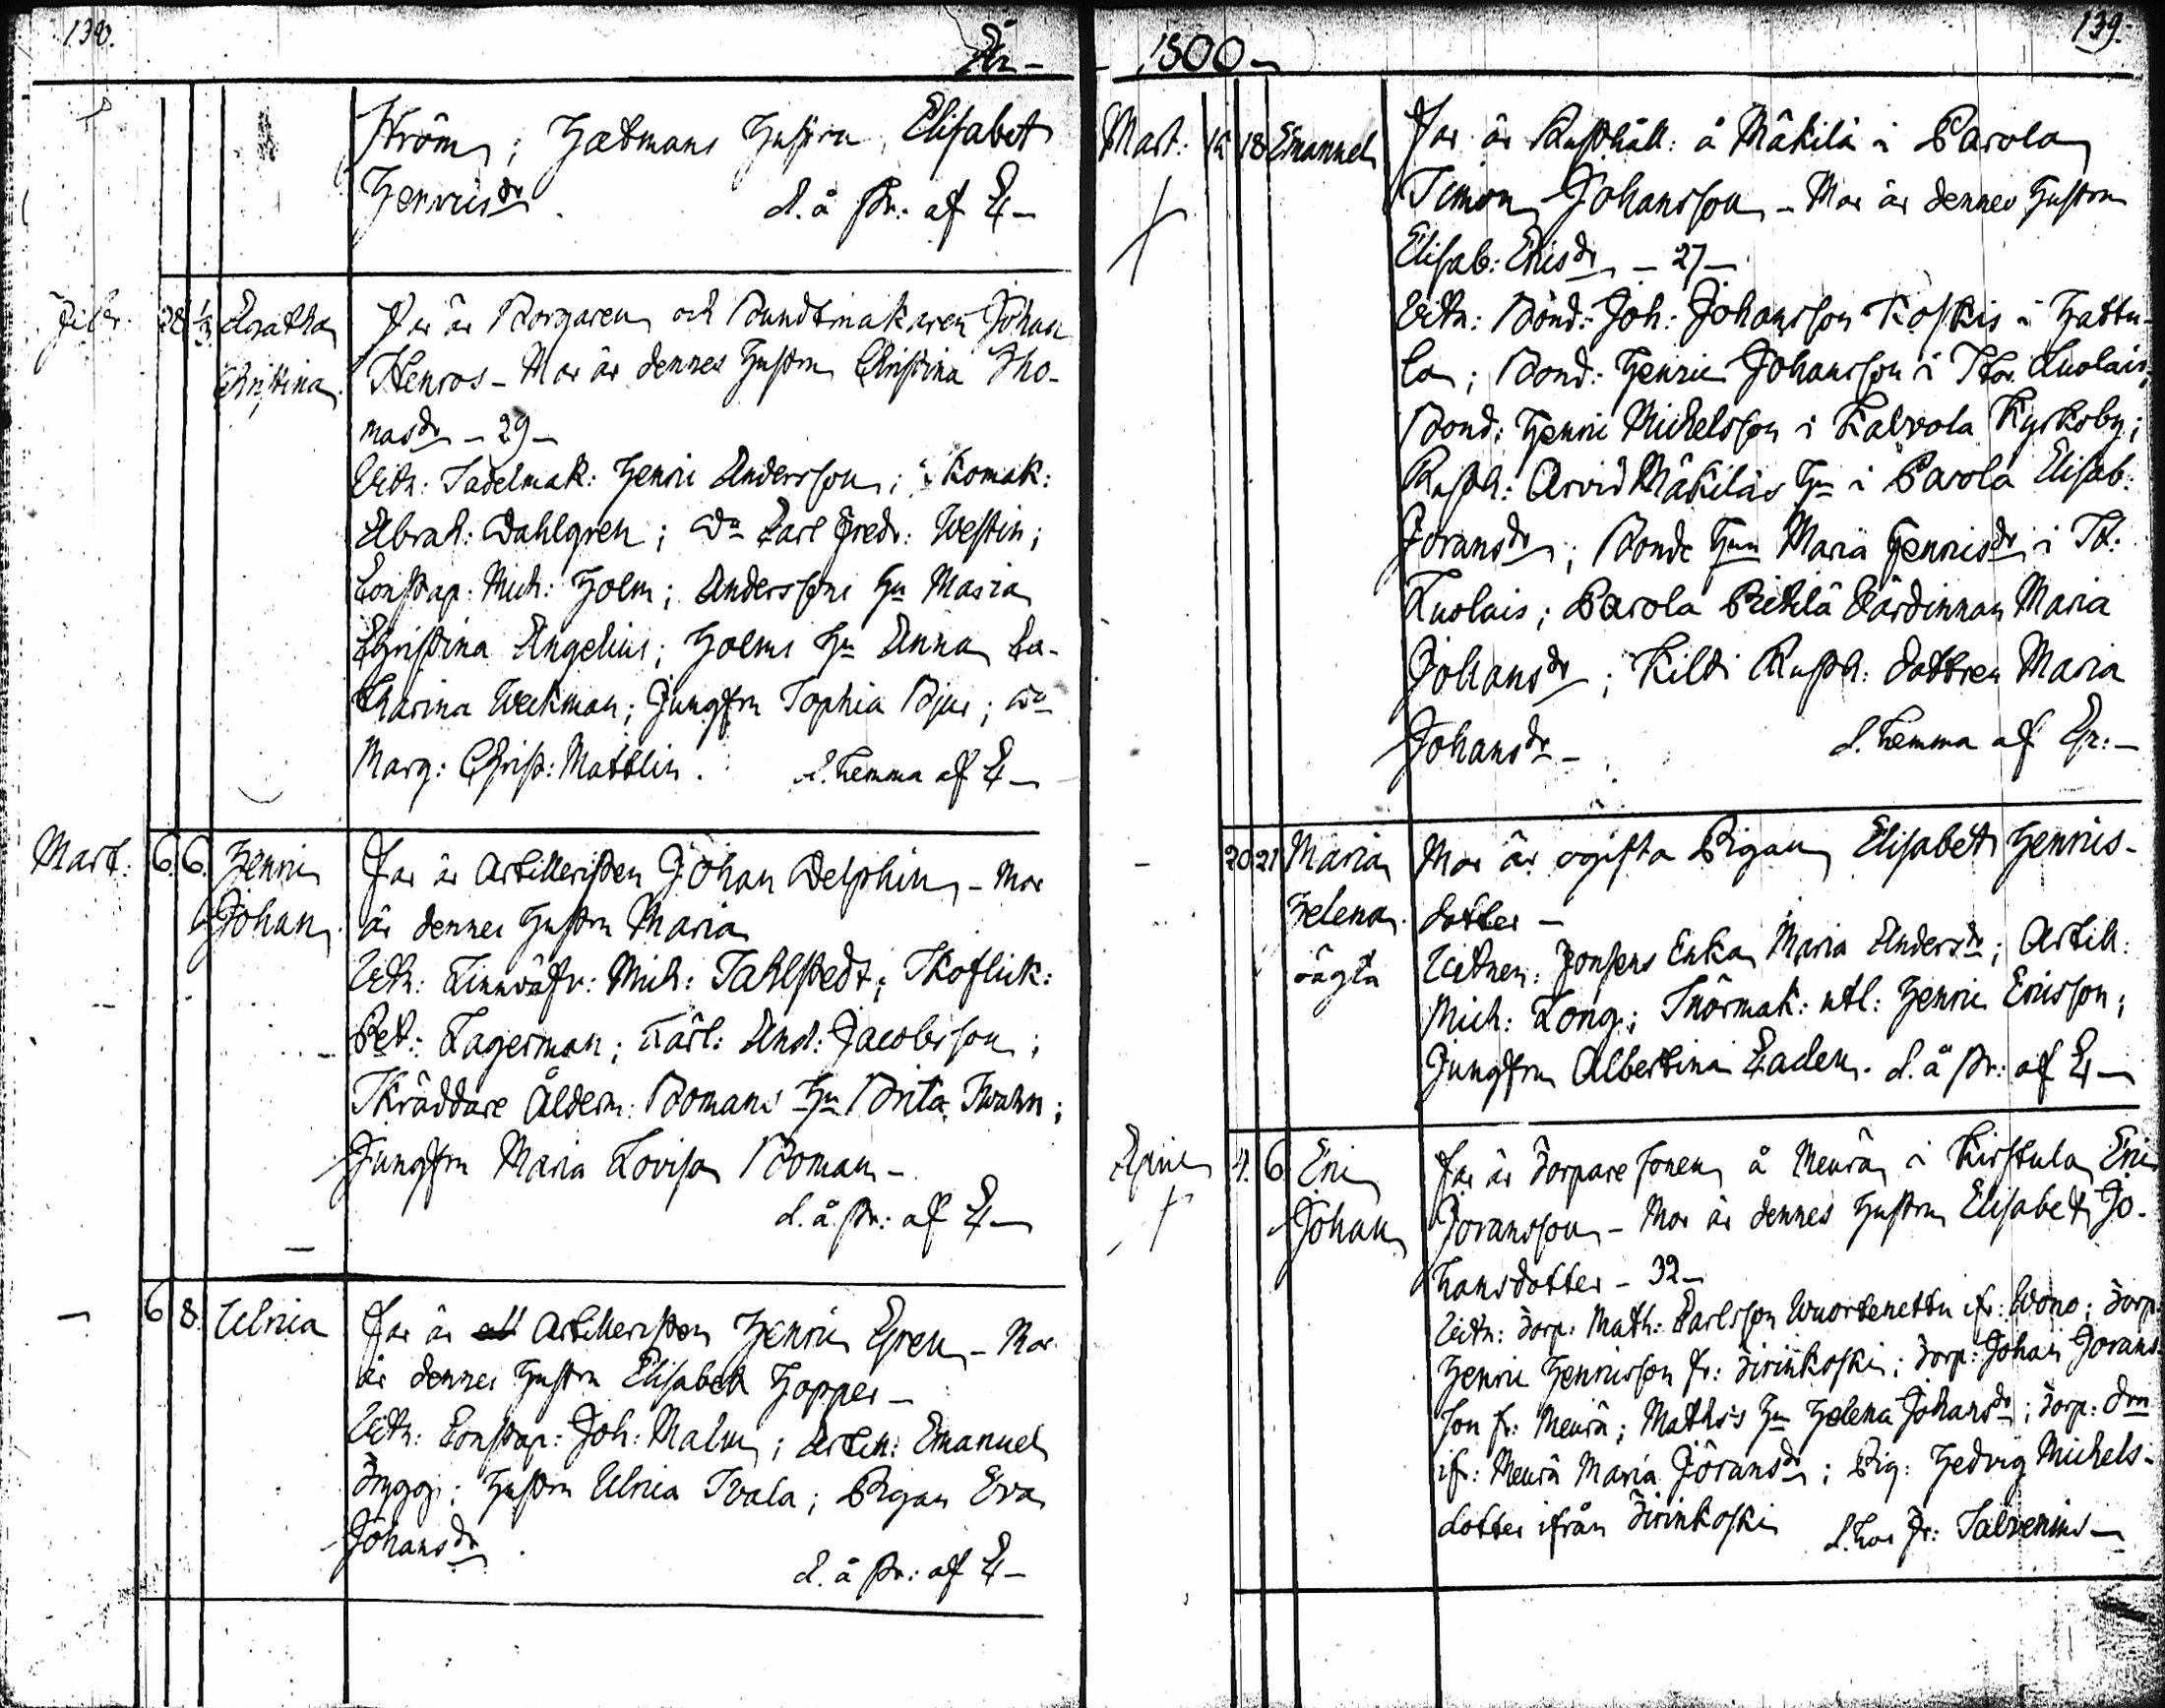 138.
År
Ström; Hatmans hustru Elisabet
Henricsdr. d. å st.: af E
Febr. 28 1/3 Agatha Christina.
Far är Borgaren och Bundtmakaren Johan
Henros - Mor är dennes hustru Christina Tho-
masdr - 29 -
Vitn: Sadelmak: Henric Andersson; Skomak:
Abrah: Dahlgren; Do Carl Fredr: Westin;
Constap: Mich: Holm; Anderssons hu Maria
Christina Angelius; Holms hu Anna Ca-
tharina Weckman; Jungfru Sophia Bjur; Do
Marg: Christ: Mattlin. d. hemma af E
Mart. 6. 6. Henric Johan.
Far är Artilleristen Johan Delphin - Mor
är dennes hustru Maria
Vitn: Linnväfv: Mich: Sahlstedt; Skoflick:
Pet: Lagerman; Carl: And: Jacobsson;
Skräddare Ålderm: Bomans hu Brita Swahn;
Jungfru Maria Lovisa Boman -
d. å st.: af E
6 8. Ulrica
Far är Artilleristen Henric Gren - Mor
är dennes hustru Elisabeth Hopper -
Vitn: Constap: Joh: Malm; Artill: Emanuel
Trygg; hustru Ulrica Svala; Pigan Eva
Johansdr. d. å st.: af E
139.
1800
Mart: 18 Emanuel
Far är Rusthåll: å Mäkilä i Parola
Simon Johansson - Mor är dennes hustru
Elisab: Ericsdr - 27 -
Vitn: Bond: Joh: Johansson Koskis i Hattu-
la; Bond: Henric Johansson i St. Luolais;
Bond: Henric Michelsson i Kalvola Kyrkoby;
Rusth: Arvid Mäkiläs hu i Parola Elisab:
Joransdr; Bonde hun Maria Henricsdr i St.
Luolais; Parola Pietilä Värdinnan Maria
Johansdr; Kildi Rusth: dottren Maria
Johansdr - d. hemma af
20 21 Maria Helena. oägta
Mor är ogifta Pigan Elisabet Henrics-
dotter -
Vitnen: Jonsens Enka Maria Andersdr; Artill:
Mich: Long; Snörmak: utl: Henric Ericsson;
Jungfru Albertina Eaden. d. å st.: af E
April 4. 6 Eric Johan
Far är Torpare sonen å Meurä i Kirstula Eric
Joransson - Mor är dennes hustru Elisabet Jo-
hansdotter - 32 -
Vitn: Torp: Math: Carlsson Wuortenettu ifr: Wono; Torp:
Henric Henricsson fr: Tirinkoski; Torp: Johan Jorans-
son fr: Meurä; Maths's hu Helena Johansdr; Torp: drn
ifr: Meurä Maria Jöransdr; Pig: Hedvig Michels-
dotter ifrån Tirinkoski d. hos Fr: Salvenius